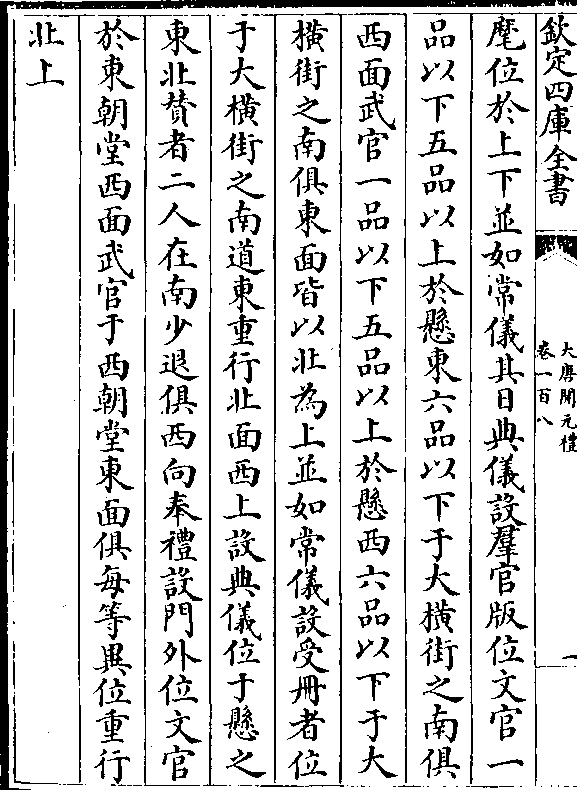 欽定四庫全書
大唐開元禮
卷一百八
一
麾位於上下並如常儀其日典儀設羣官版位文官一
品以下五品以上於懸東六品以下于大橫街之南俱
西面武官一品以下五品以上於懸西六品以下于大
橫街之南俱東面皆以北為上並如常儀設受冊者位
于大橫街之南道東重行北面西上設典儀位于懸之
東北贊者二人在南少退俱西向奉禮設門外位文官
於東朝堂西面武官于西朝堂東面俱每等異位重行
北上